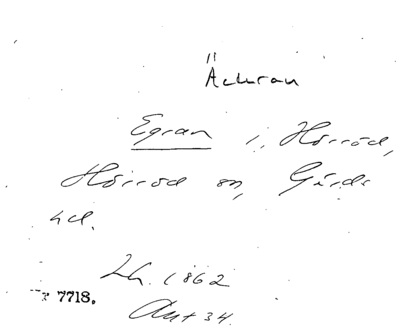 Äckran
Egran i Hörröd,
Hörröd sn, Gärds
hd.
Lh. 1862
7718.
Ant 34.